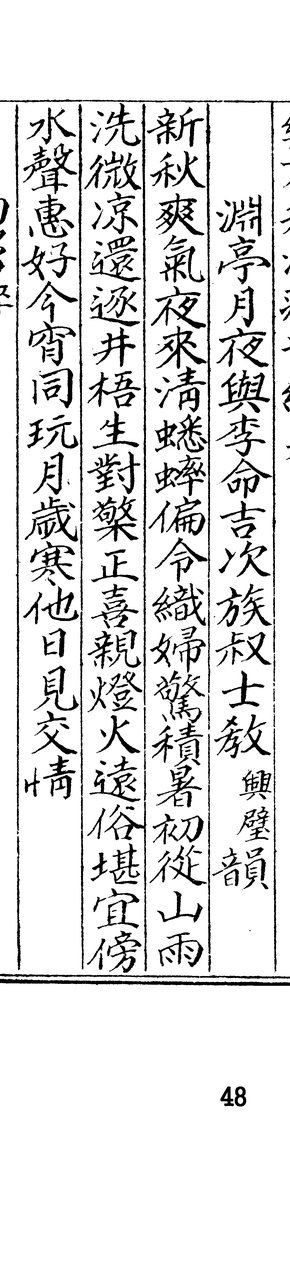 淵亭月夜與李命吉次族叔士敎興璧韻
新秋爽氣夜來淸蟋蟀偏令織婦驚積暑初從山雨
洗微凉還逐井梧生對檠正喜親燈火遠俗堪宜傍
水聲惠好今宵同玩月歲寒他日見交情
48